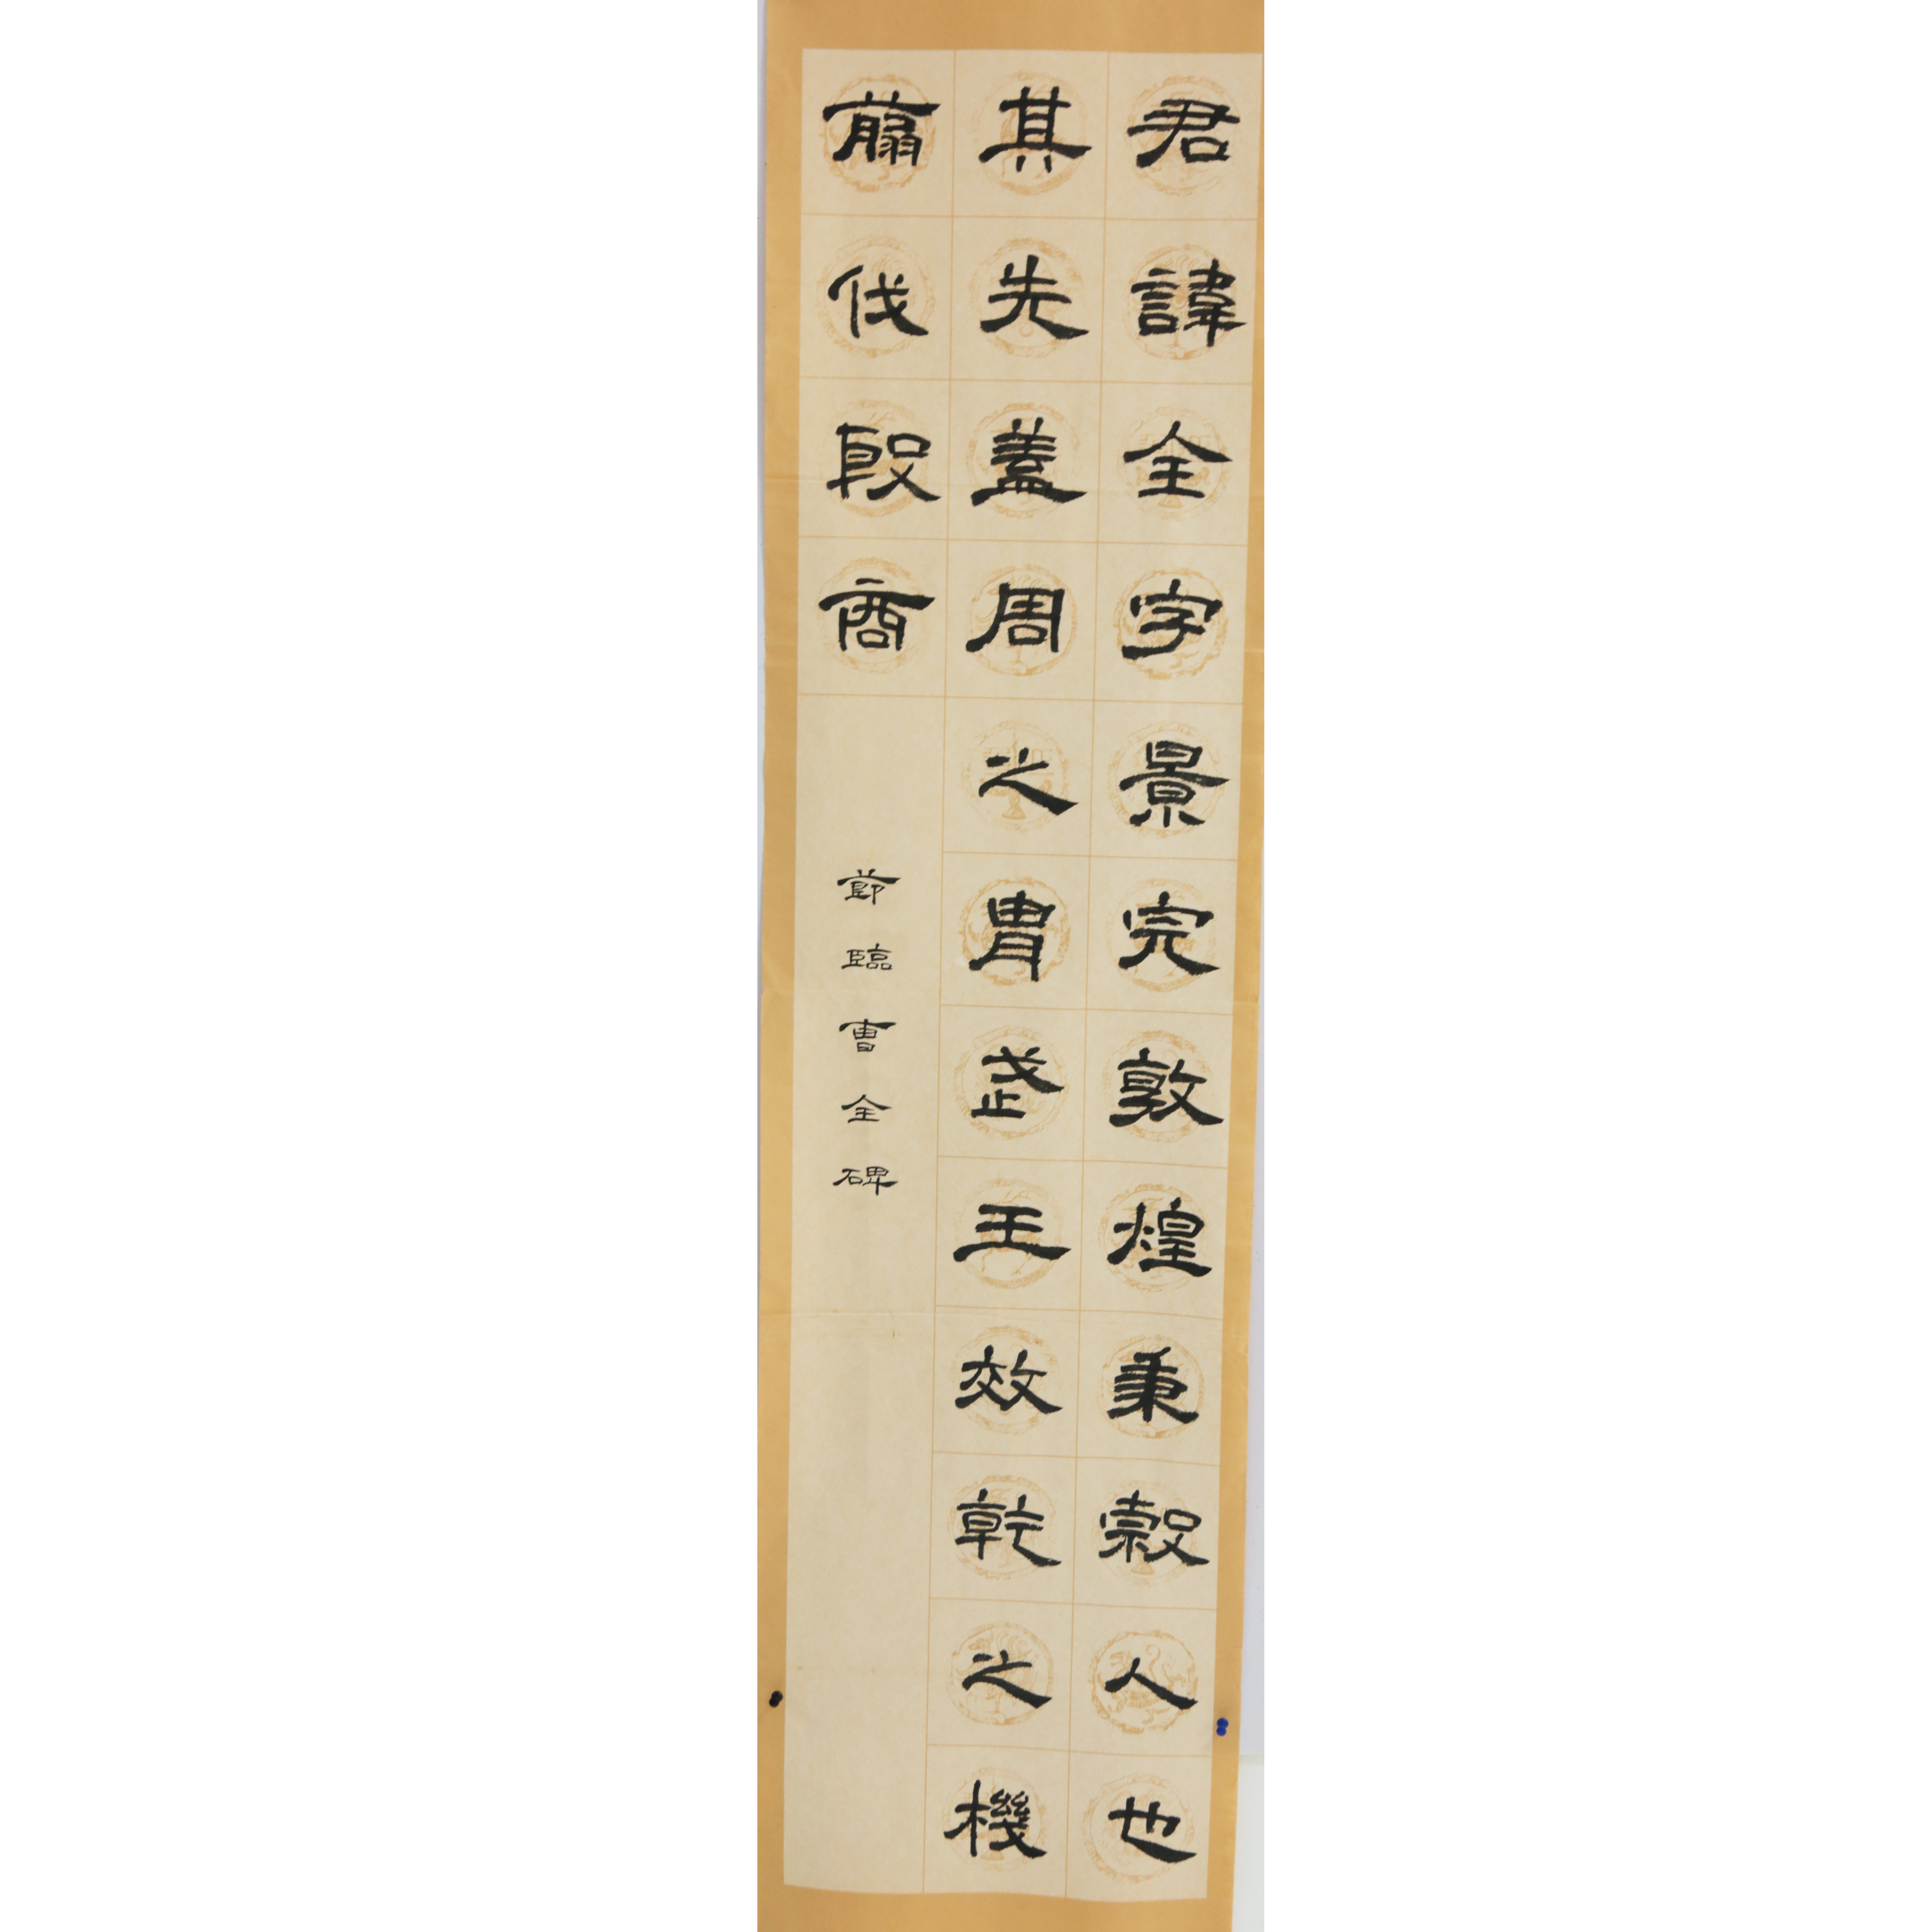 君諱全字景完敦煌秉穀人也
其先蓋周之胄武王效乾之機
翦伐殷商
節臨曹全碑